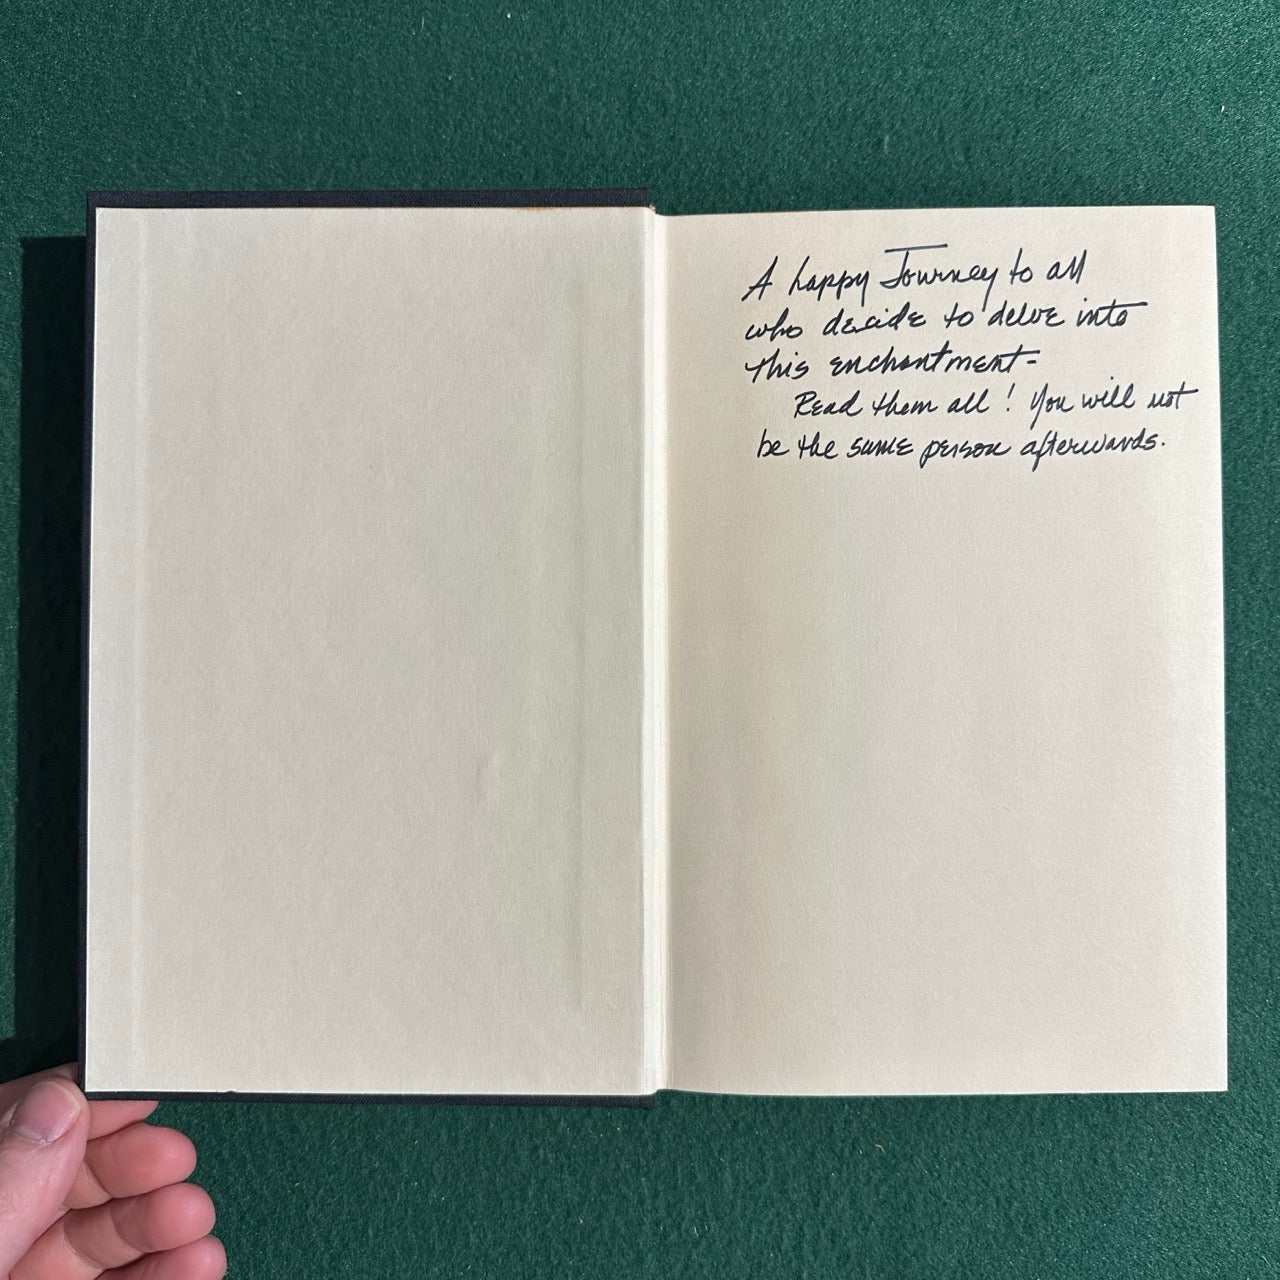 A happy Journey to all
who decide to delve into
this enchantment-
Read them all! You will not
be the same person afterwards.